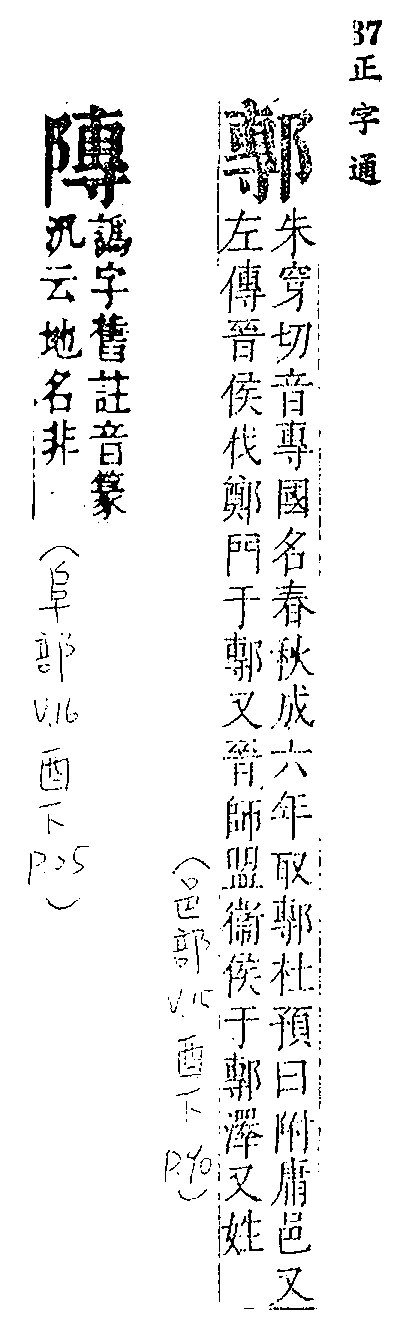 37正字通
鄟
朱穿切音專國名春秋成六年取鄟杜預曰附庸邑又
左傳晉侯伐鄭門于鄟又晉師盟衞侯于鄟澤又姓
(邑部 V.15 酉下 P.90)
䧠
譌字舊註音篆
汎云地名非
(阜部 V.16 酉下 P.25)